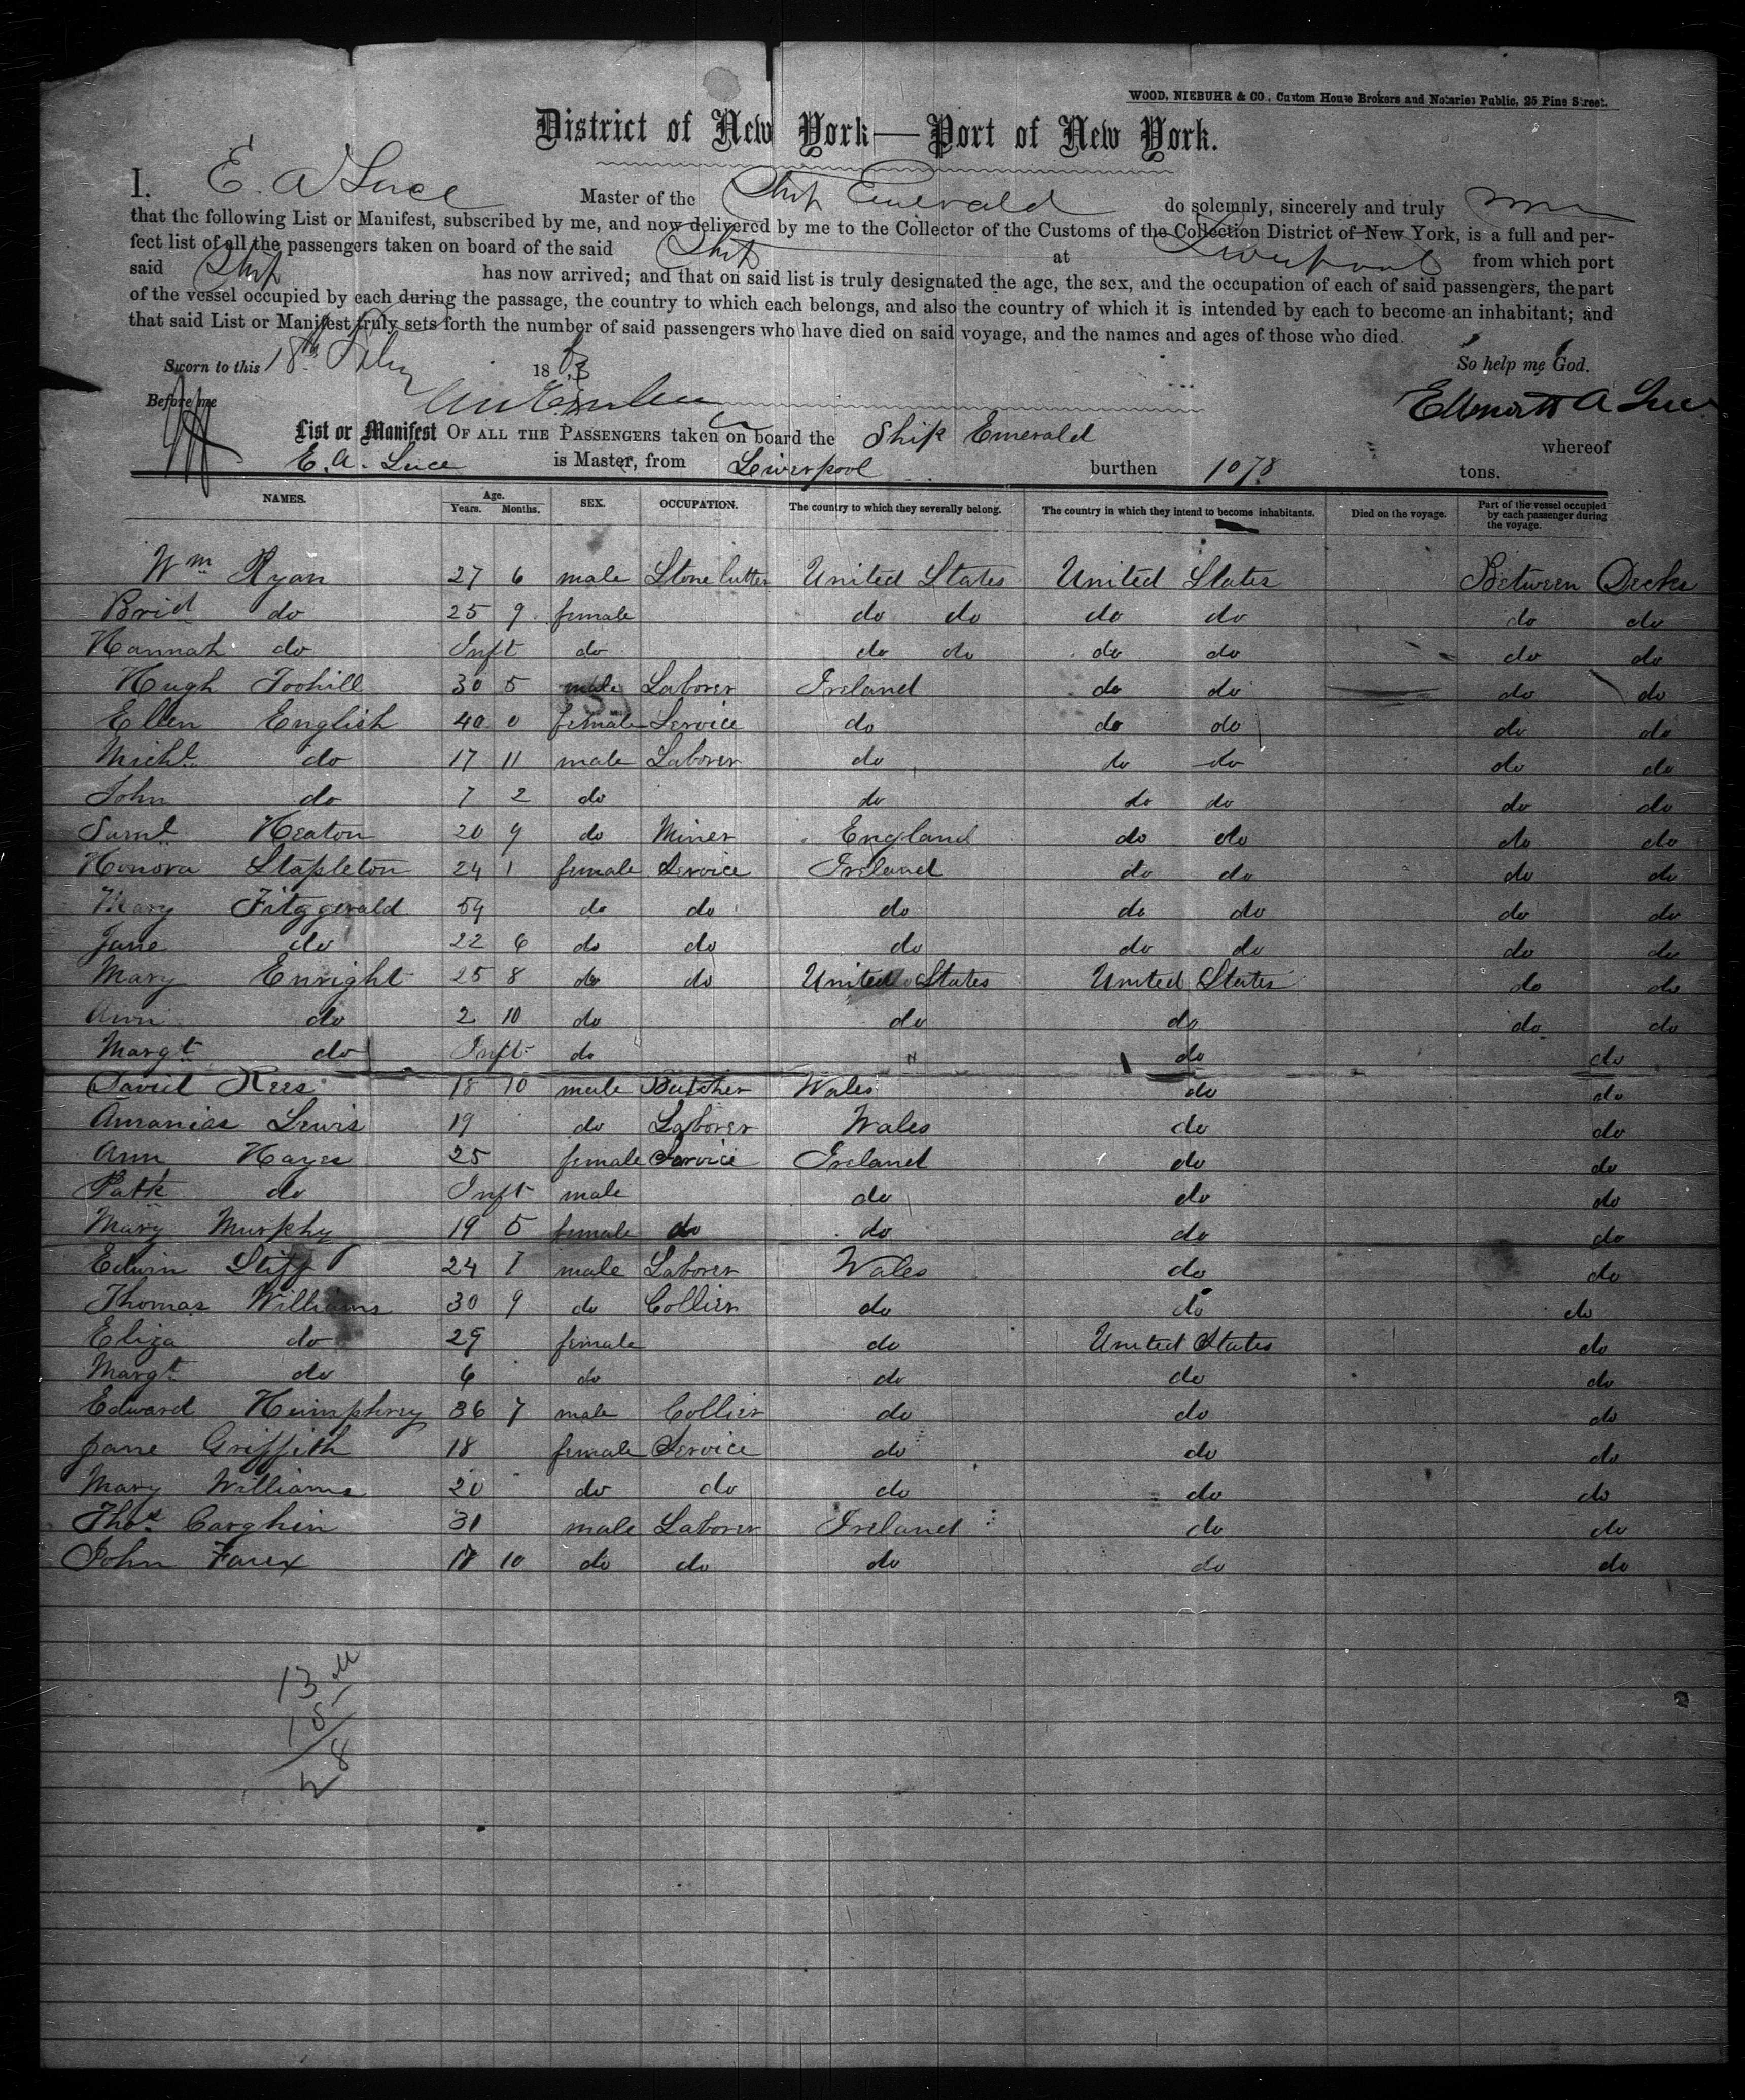 WOOD, NIEBUHR & CO., Custom House Brokers and Notaries Public, 25 Pine Street.
District of New York—Port of New York.
I. E. A. Luce Master of the Ship Emerald do solemnly, sincerely and truly
that the following List or Manifest, subscribed by me, and now delivered by me to the Collector of the Customs of the Collection District of New York, is a full and per-
fect list of all the passengers taken on board of the said Ship at Liverpool from which port
said Ship has now arrived; and that on said list is truly designated the age, the sex, and the occupation of each of said passengers, the part
of the vessel occupied by each during the passage, the country to which each belongs, and also the country of which it is intended by each to become an inhabitant; and
that said List or Manifest truly sets forth the number of said passengers who have died on said voyage, and the names and ages of those who died.
Sworn to this 18th Feby 1863 So help me God.
Before me A Luce
List or Manifest OF ALL THE PASSENGERS taken on board the Ship Emerald whereof
E. A. Luce is Master, from Liverpool burthen 1078 tons.
NAMES. Age. Years. Months. SEX. OCCUPATION. The country to which they severally belong. The country in which they intend to become inhabitants. Died on the voyage. Part of the vessel occupied by each passenger during the voyage.
Wm Ryan 27 6 male Stone Cutter United States United States Between Decks
Brid do 25 9 female do do do do do do
Hannah do Inft do do do do do do do
Hugh Toohill 30 5 male Laborer Ireland do do do do
Ellen English 40 0 female Service do do do do do
Michl do 17 11 male Laborer do do do do do
John do 7 2 do do do do do do
Saml Heaton 20 9 do Miner England do do do do
Honora Stapleton 24 1 female Service Ireland do do do do
Mary Fitzgerald 54 do do do do do do do
Jane do 22 6 do do do do do do do
Mary Enright 25 8 do do United States United States do do
Ann do 2 10 do do do do do
Margt do Inft do " do do
David Rees 18 10 male Butcher Wales do do
Amanias Lewis 19 do Laborer Wales do do
Ann Hayes 25 female Service Ireland do do
Patk do Inft male do do do
Mary Murphy 19 5 female do do do do
Edwin Stiff 24 1 male Laborer Wales do do
Thomas Williams 30 9 do Collier do do do
Eliza do 29 female do United States do
Margt do 6 do do do do
Edward Humphrey 36 7 male Collier do do do
Jane Griffith 18 female Service do do do
Mary Williams 20 do do do do do
Thos Carghin 31 male Laborer Ireland do do
John 18 10 do do do do do
13 M
15
28